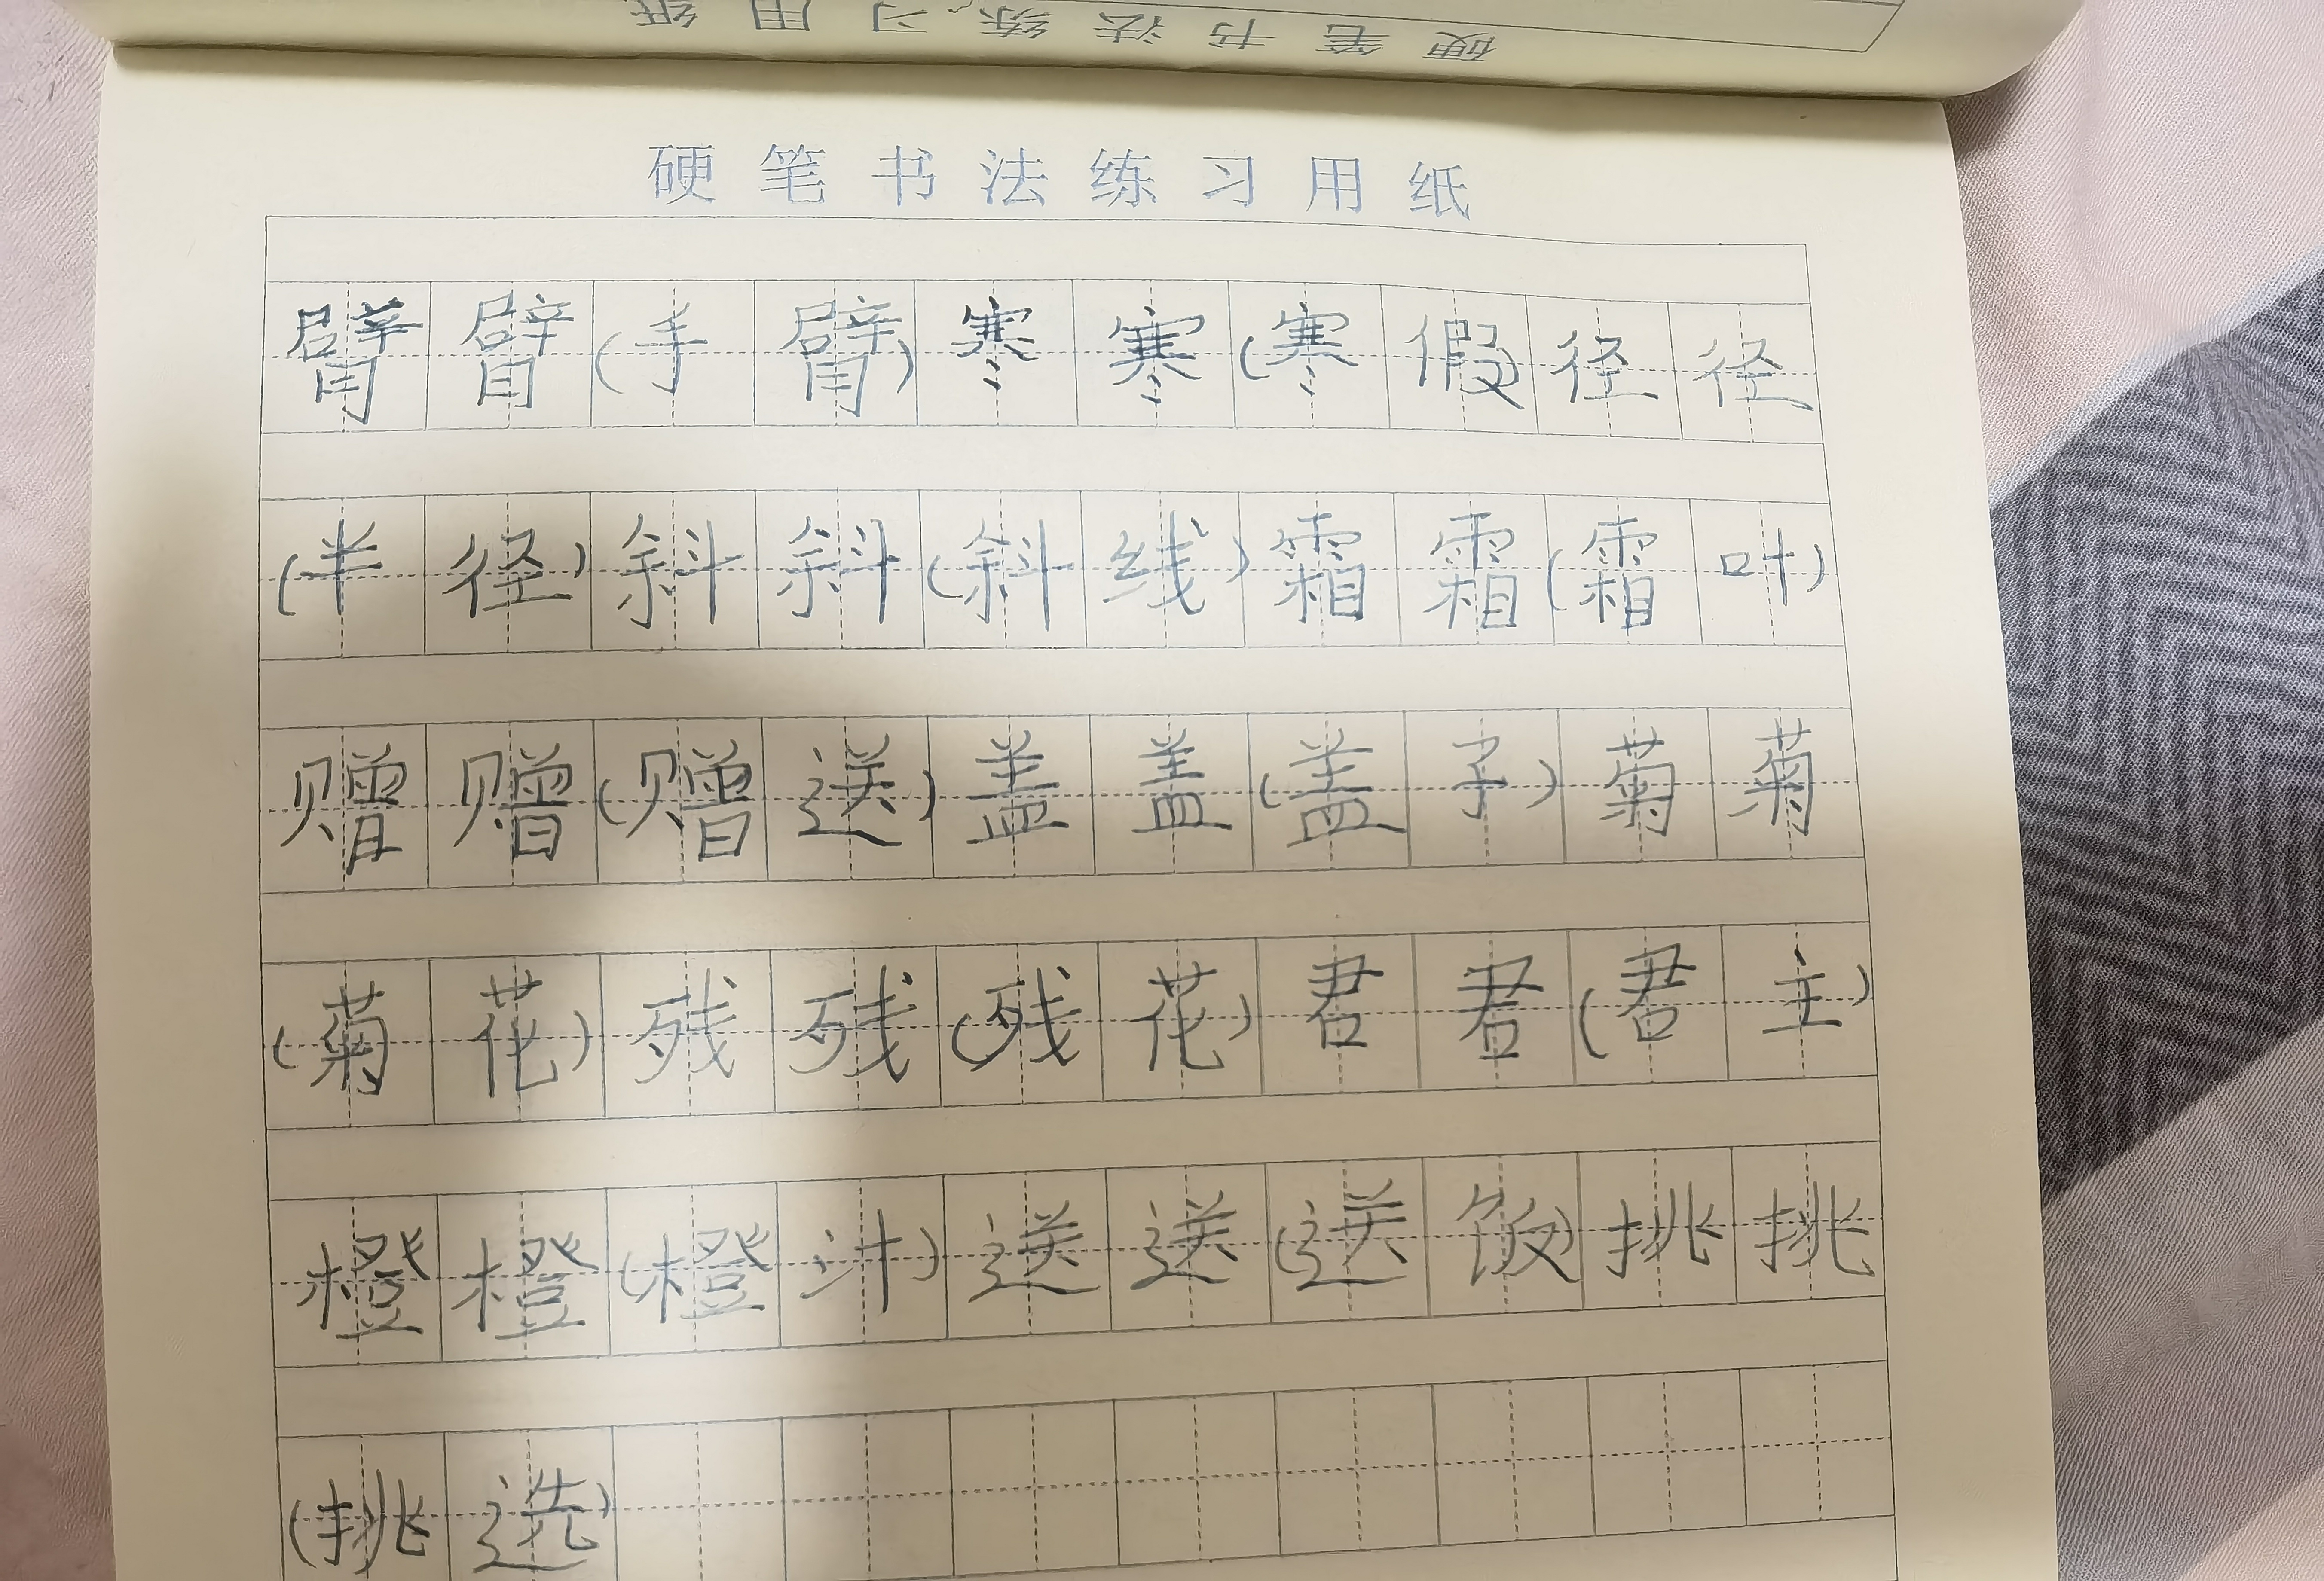 硬笔书法练习用纸
硬笔书法练习用纸
臂臂(手臂)寒寒(寒假径径
(半径)斜斜(斜线)霜霜(霜叶)
赠赠(赠送)盖盖(盖子)菊菊
(菊花)残残(残花)君君(君主)
橙橙(橙汁)送送(送饭)挑挑
(挑选)